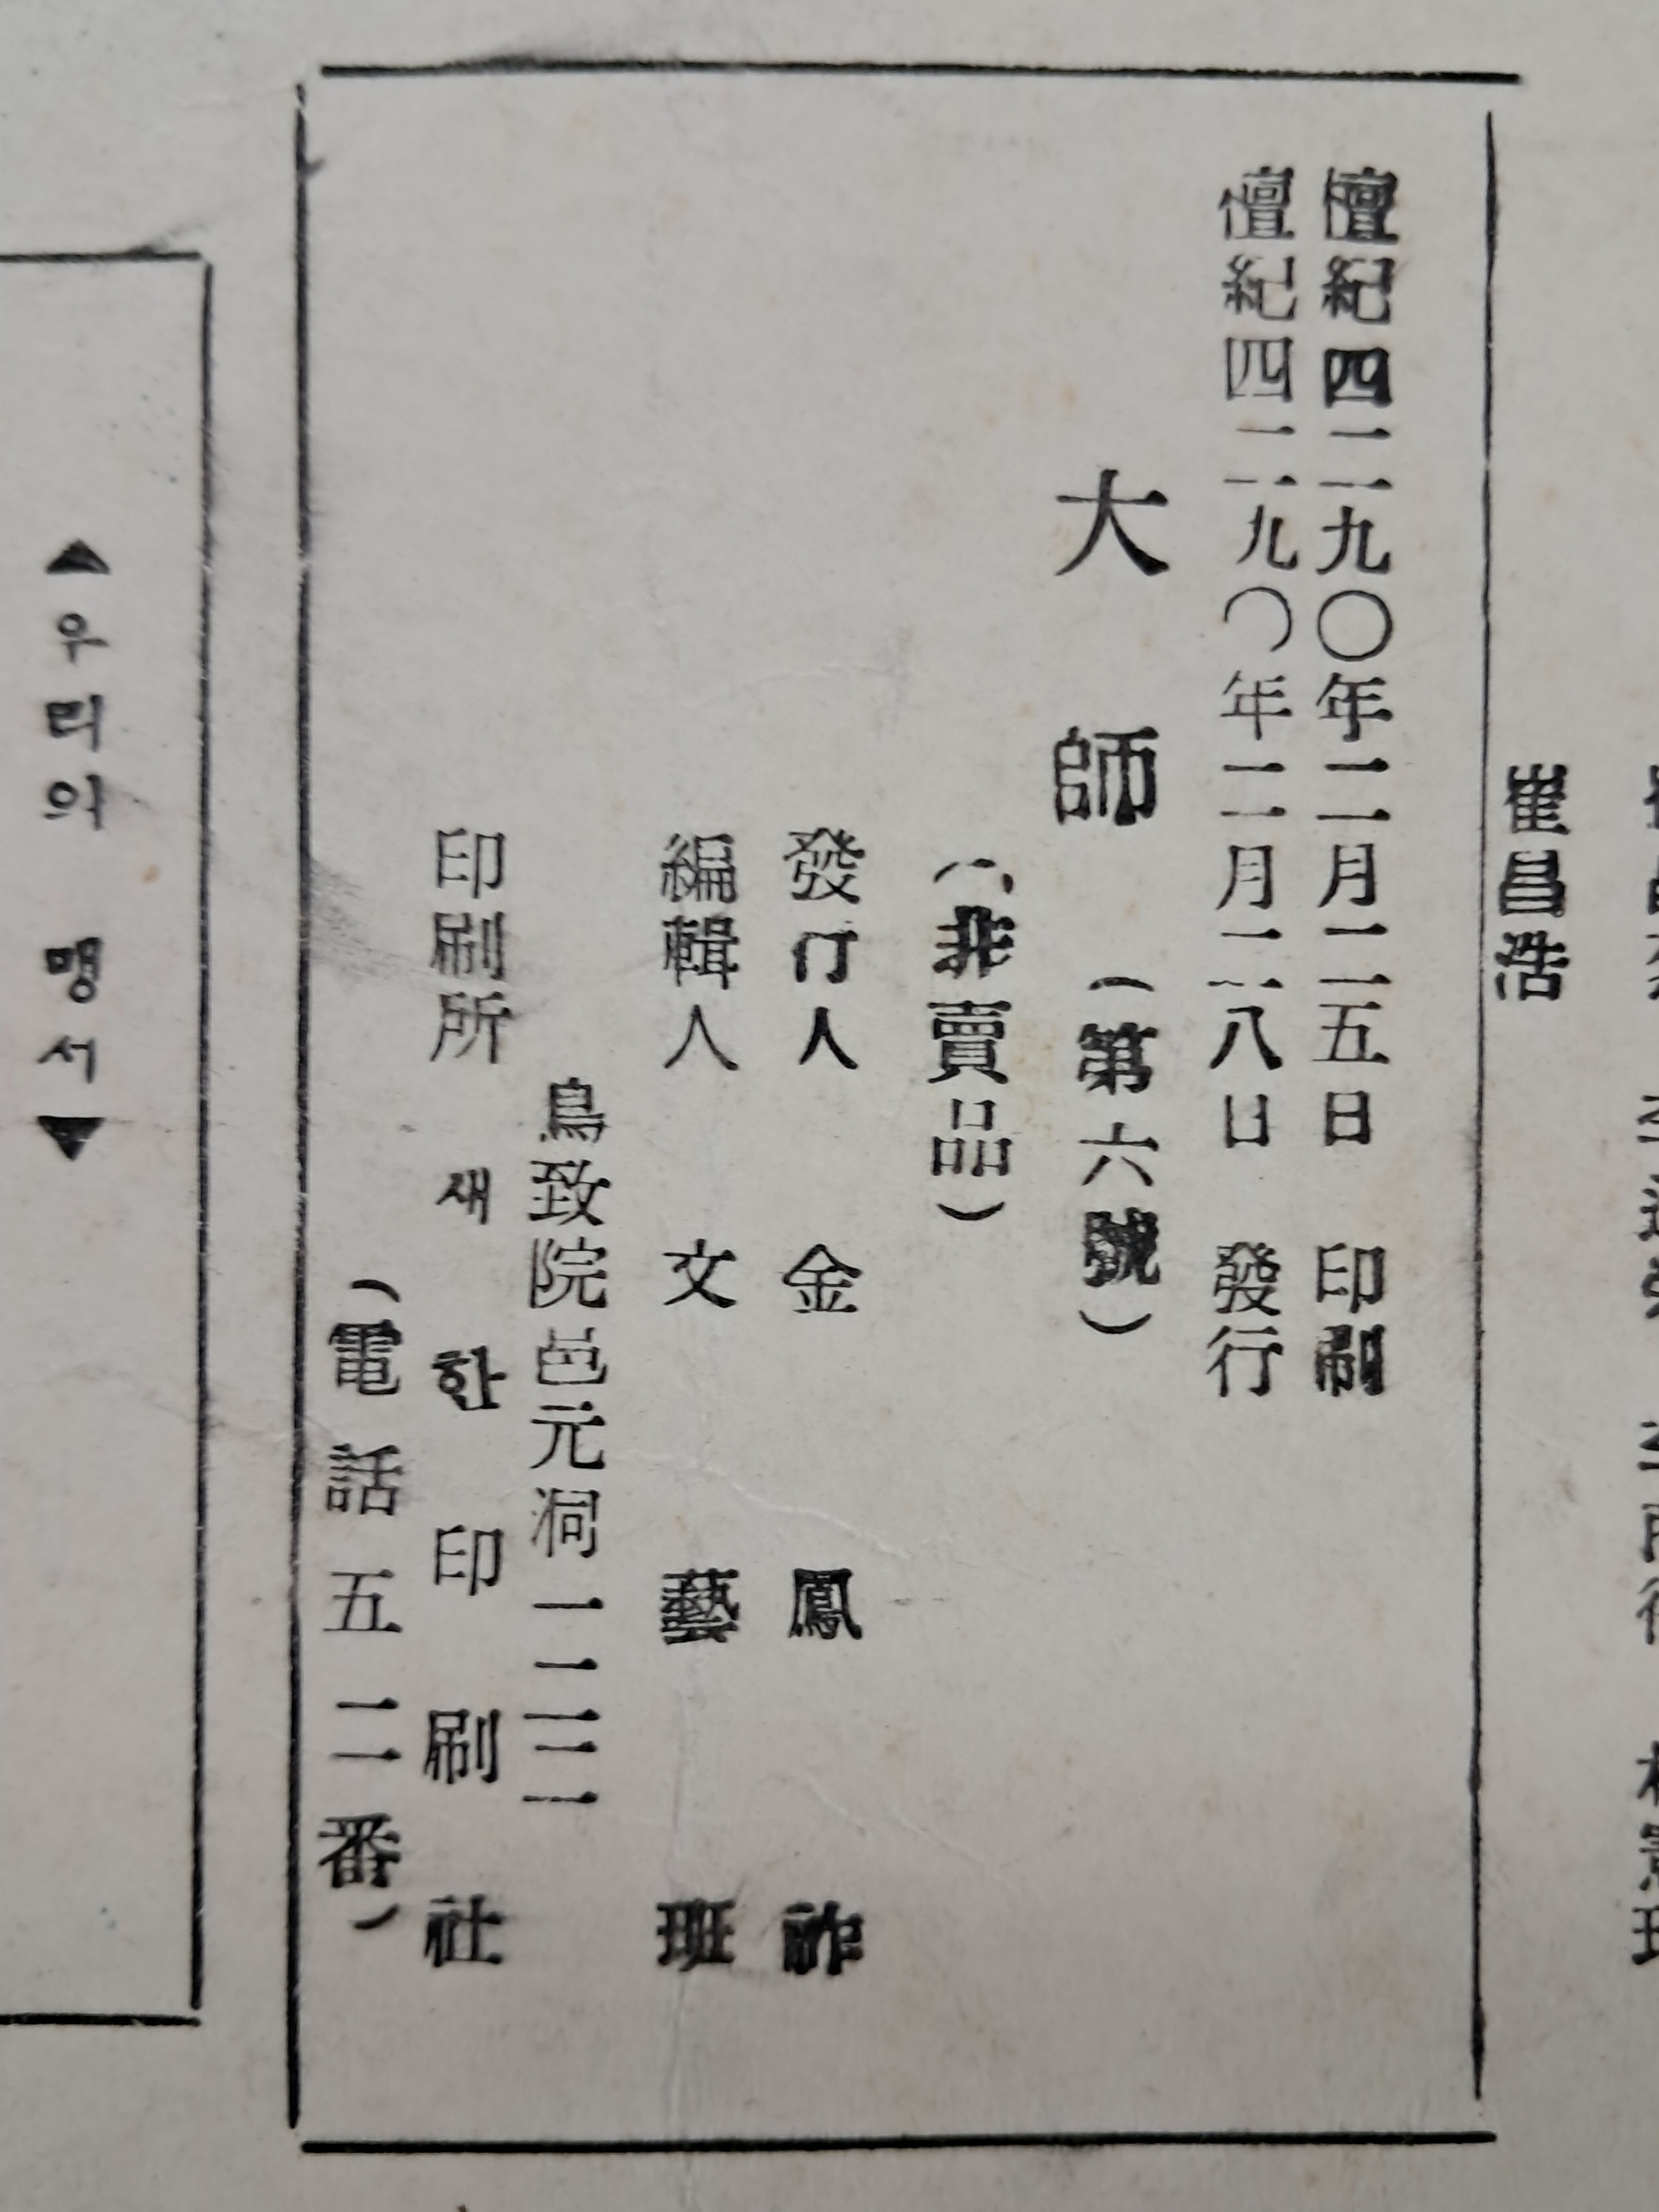 崔昌浩
檀紀四二九〇年二月二五日 印刷
檀紀四二九〇年二月二八日 發行
大師 (第六號)
(非賣品)
發行人 金鳳祚
編輯人 文藝班
鳥致院邑元洞一二二
印刷所 새한印刷社
(電話五二番)
▲우리의 맹서▼